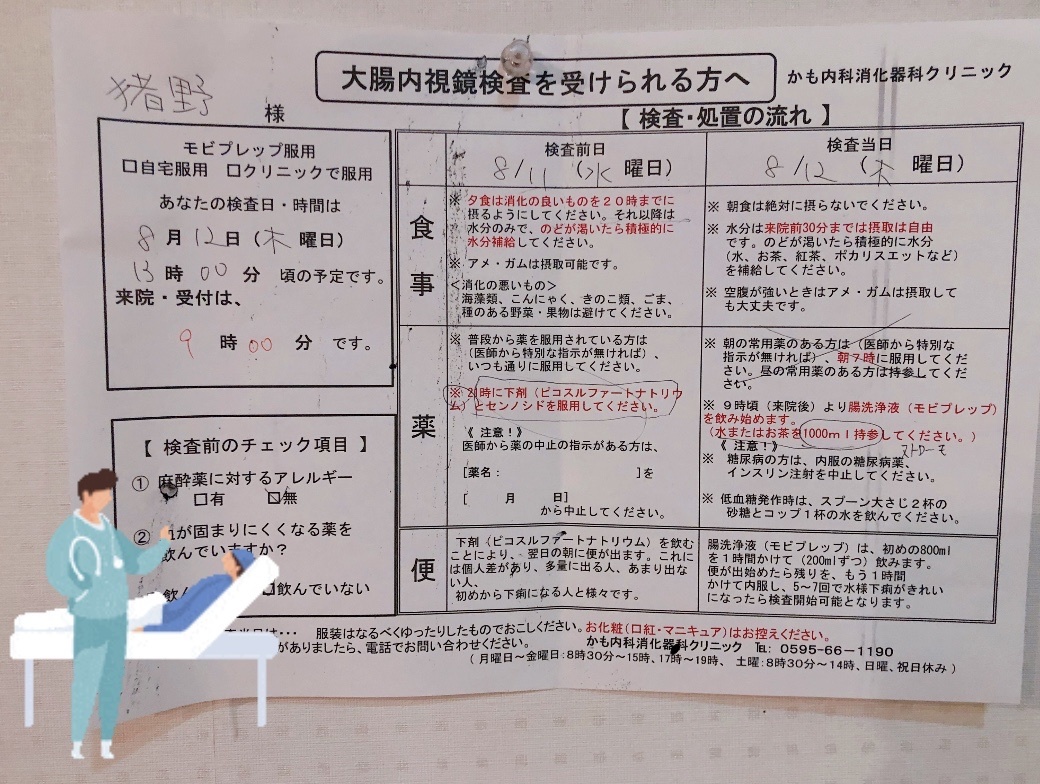 大腸内視鏡検査を受けられる方へ
かも内科消化器科クリニック
猪野 様
【 検査・処置の流れ 】
モビプレップ服用
□自宅服用 □クリニックで服用
あなたの検査日・時間は
8 月 12 日 (木 曜日)
13 時 00 分 頃の予定です。
来院・受付は、
9 時 00 分 です。
【 検査前のチェック項目 】
① 麻酔薬に対するアレルギー
□有 ☑無
② 血が固まりにくくなる薬を
飲んでいますか?
飲ん
飲んでいない
検査前日
8/11 (水 曜日)
検査当日
8/12 (木 曜日)
食事
※ 夕食は消化の良いものを20時までに
摂るようにしてください。それ以降は
水分のみで、のどが渇いたら積極的に
水分補給してください。
※ アメ・ガムは摂取可能です。
<消化の悪いもの>
海藻類、こんにゃく、きのこ類、ごま、
種のある野菜・果物は避けてください。
※ 朝食は絶対に摂らないでください。
※ 水分は来院前30分までは摂取は自由
です。のどが渇いたら積極的に水分
(水、お茶、紅茶、ポカリスエットなど)
を補給してください。
※ 空腹が強いときはアメ・ガムは摂取して
も大丈夫です。
薬
※ 普段から薬を服用されている方は
(医師から特別な指示が無ければ)、
いつも通りに服用してください。
※ 21時に下剤(ピコスルファートナトリウ
ム)とセンノシドを服用してください。
《 注意!》
医師から薬の中止の指示がある方は、
[薬名: ]を
[ 月 日]
から中止してください。
※ 朝の常用薬のある方は(医師から特別な
指示が無ければ)、朝7時に服用してくだ
さい。昼の常用薬のある方は持参してくだ
さい。
※ 9時頃(来院後)より腸洗浄液(モビプレップ)
を飲み始めます。
(水またはお茶を1000ml持参してください。)
《 注意!》
※ 糖尿病の方は、内服の糖尿病薬、
インスリン注射を中止してください。
※ 低血糖発作時は、スプーン大さじ2杯の
砂糖とコップ1杯の水を飲んでください。
便
下剤(ピコスルファートナトリウム)を飲む
ことにより、翌日の朝に便が出ます。これに
は個人差があり、多量に出る人、あまり出な
い人、
初めから下痢になる人と様々です。
腸洗浄液(モビプレップ)は、初めの800ml
を1時間かけて(200mlずつ)飲みます。
便が出始めたら残りを、もう1時間
かけて内服し、5~7回で水様下痢がきれい
になったら検査開始可能となります。
査当日は・・・ 服装はなるべくゆったりしたものでおこしください。お化粧(口紅・マニキュア)はお控えください。
がありましたら、電話でお問い合わせください。 かも内科消化器科クリニック ℡:0595-66-1190
(月曜日~金曜日:8時30分~15時、17時~19時、 土曜:8時30分~14時、日曜、祝日休み )